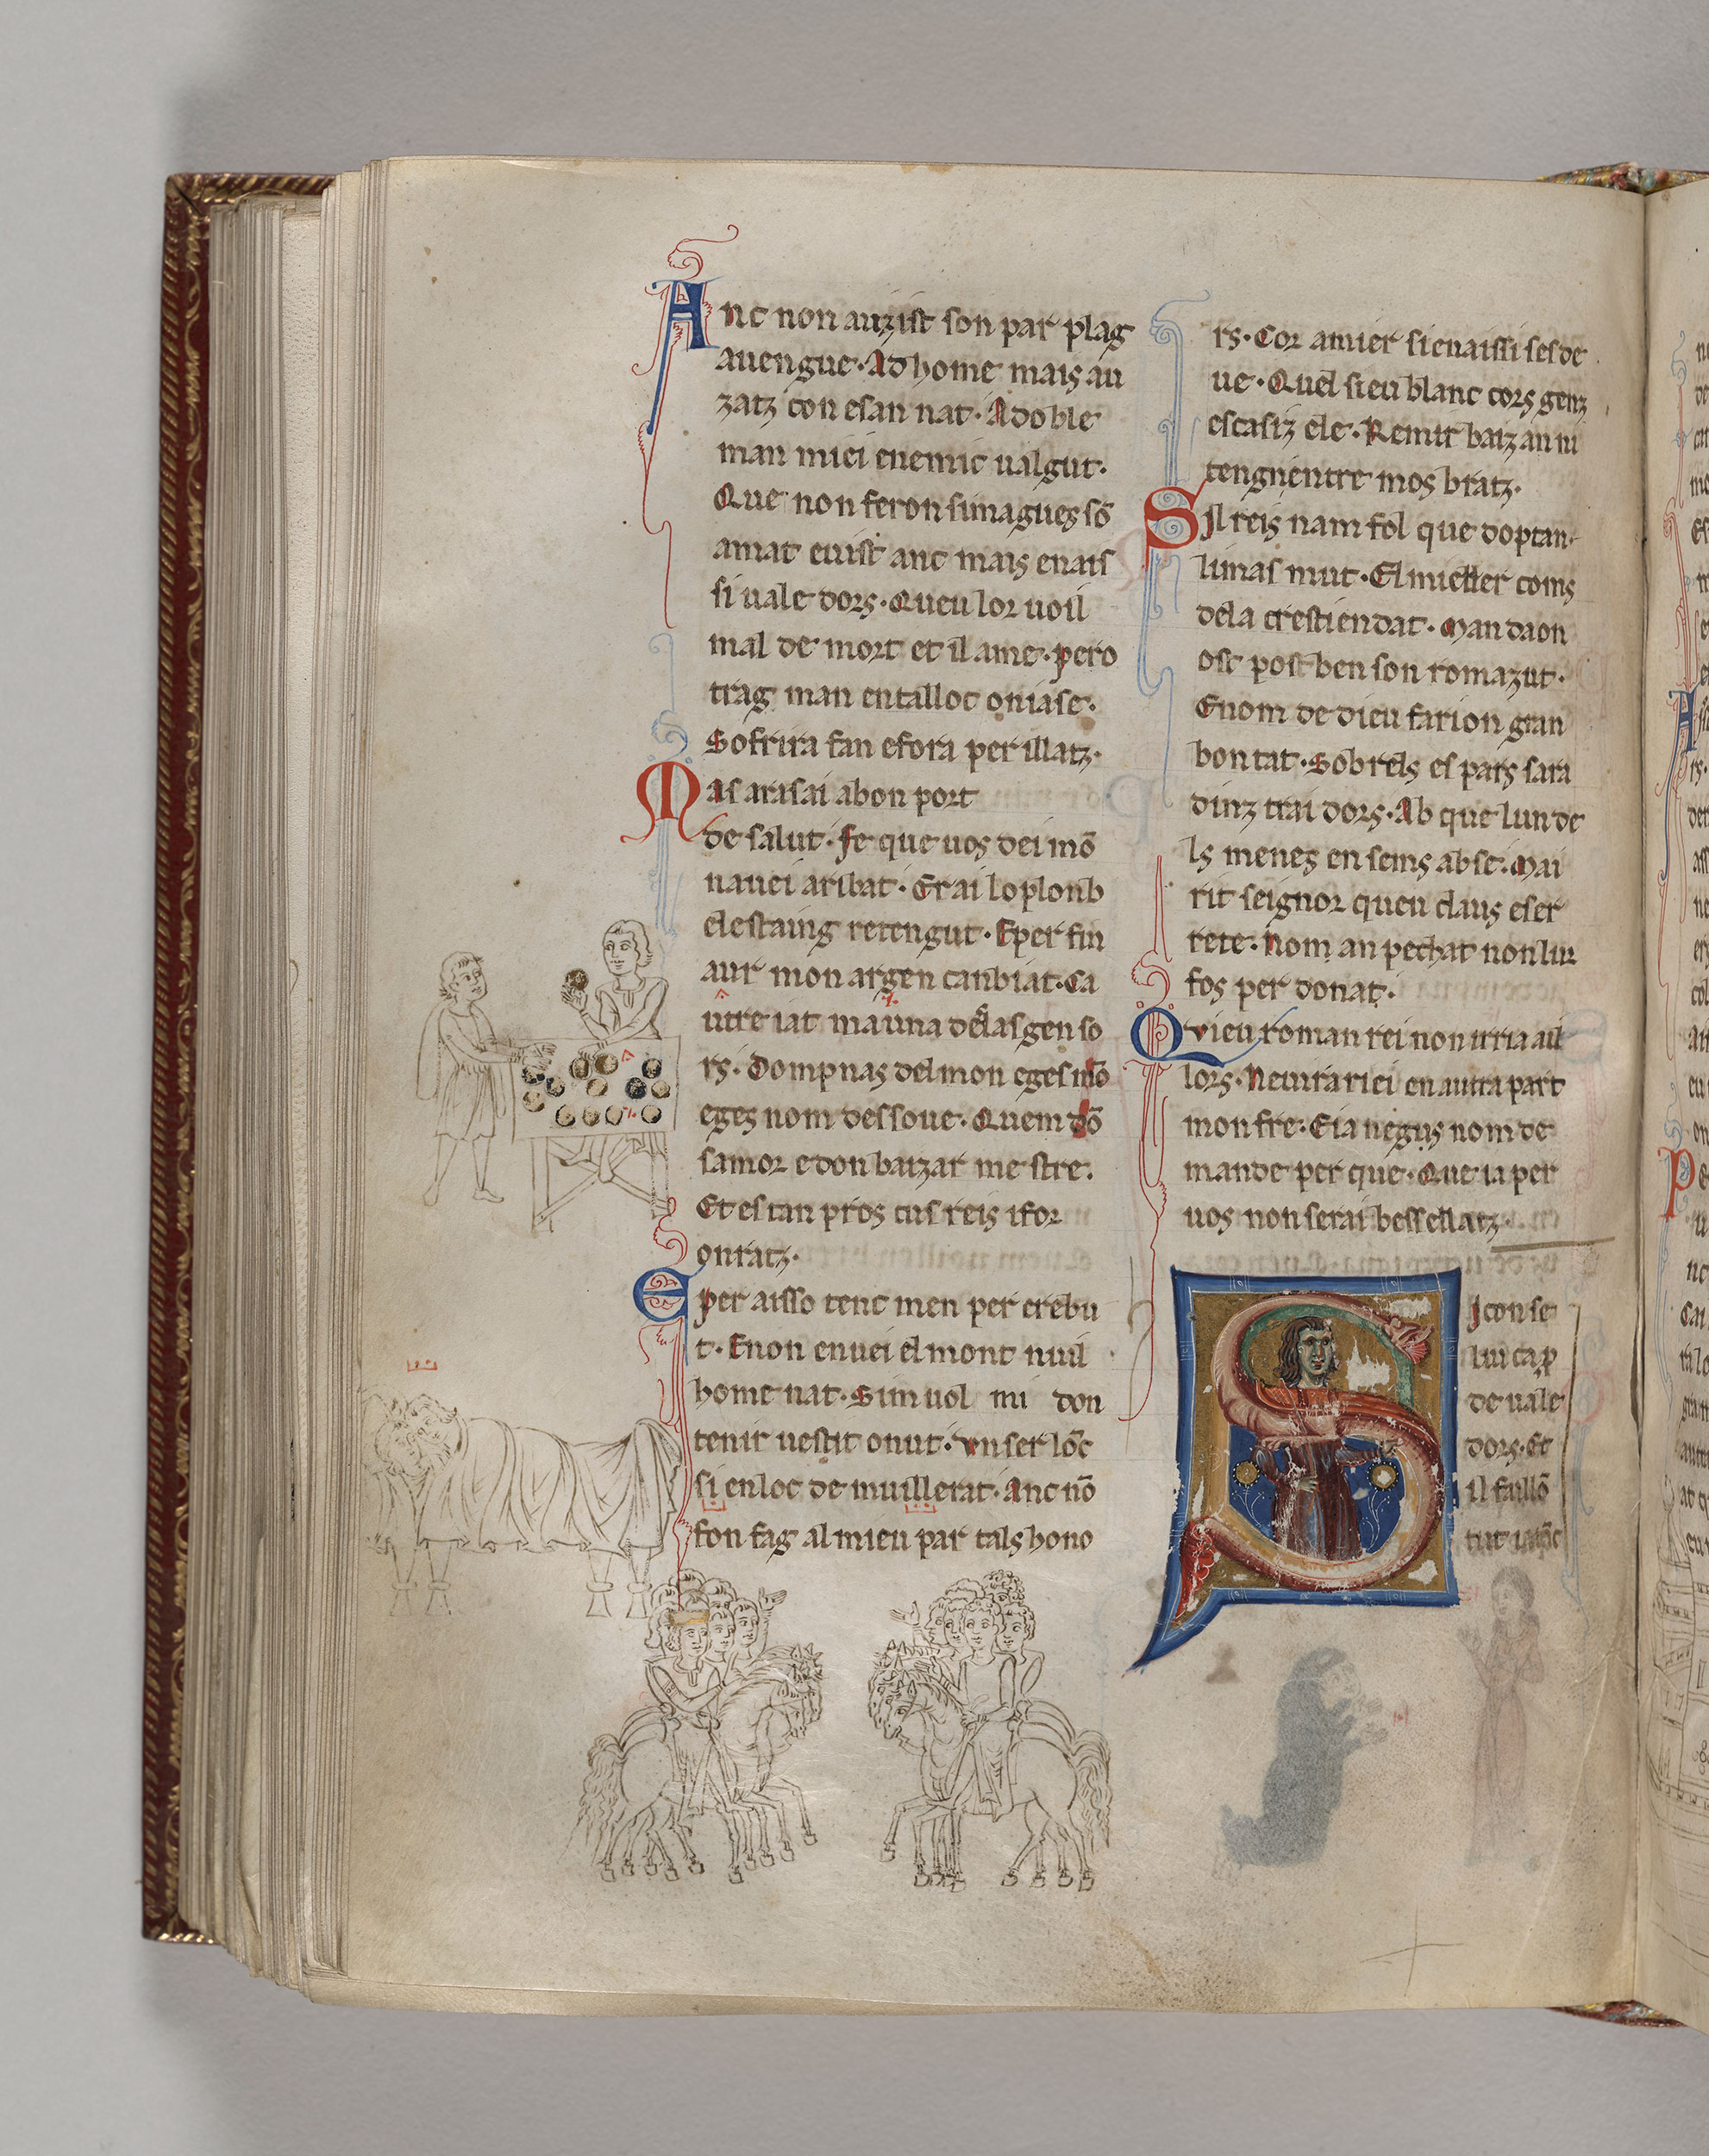 Anc non auzist son par plag
auengue· Ad home mais au
zatz con esan nat· Adoble
man miei enemic ualgut·
Que non feron simagues sō
amat euist anc mais enais
si uale dors· Queu lor uoil
mal de mort et il ame· pero
trag man entalloc oniase·
Sofrira fan efora per illatz·
Mas arasai abon port
de salut· fe que uos dei mō
nauei aribat· Et ai loplonb
elestaing retengut· Eper fin
aur mon argen canbiat· Ca
utre iat mauna dellas gen so
rs· Dompnas delmon eges mō
eges nom dessoue· Quem dō
samor edon baizar me stre·
Et es tan pros cus reis ifor
onratz·
Eper aisso tenc men per erebu
t· Enon enuei el mont nuil
home nat· Sim uol mi don
tenir uestit onut· Vn ser lōc
si enloc de muillerat· Anc nō
fon fag al mieu par tals hono
rs· Cor amier sienaissi ses de
ue· Quel sieu blanc cors genz
escasiz ele· Remir baizan ni
tengnentre mos bratz·
Sil reis nam fol que doptan
limas mut· El mieller coms
dela crestiendat· Mandaon
ost post ben son romazut·
Enom de dieu farion gran
bontat· Sobrels es pars sara
dinz trai dors· Ab que lun de
ls menes en sems abse· Mai
rit seignor queu claus eser
rete· Nom an pechat non lur
fos per donat·
Qvieu roman rei non irria ail
lors· Neuirariei en autra part
mon fre· Eia negus nom de
mande per que· Que ia per
uos non serai bessellatz·
Si con se
lui cap
de uale
dors· Et
il faillō
tut